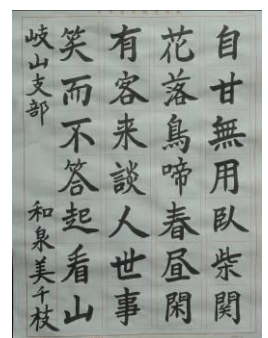 自甘無用臥柴関
花落鳥啼春昼閑
有客来談人世事
笑而不答起看山
岐山支部 和泉美千枝